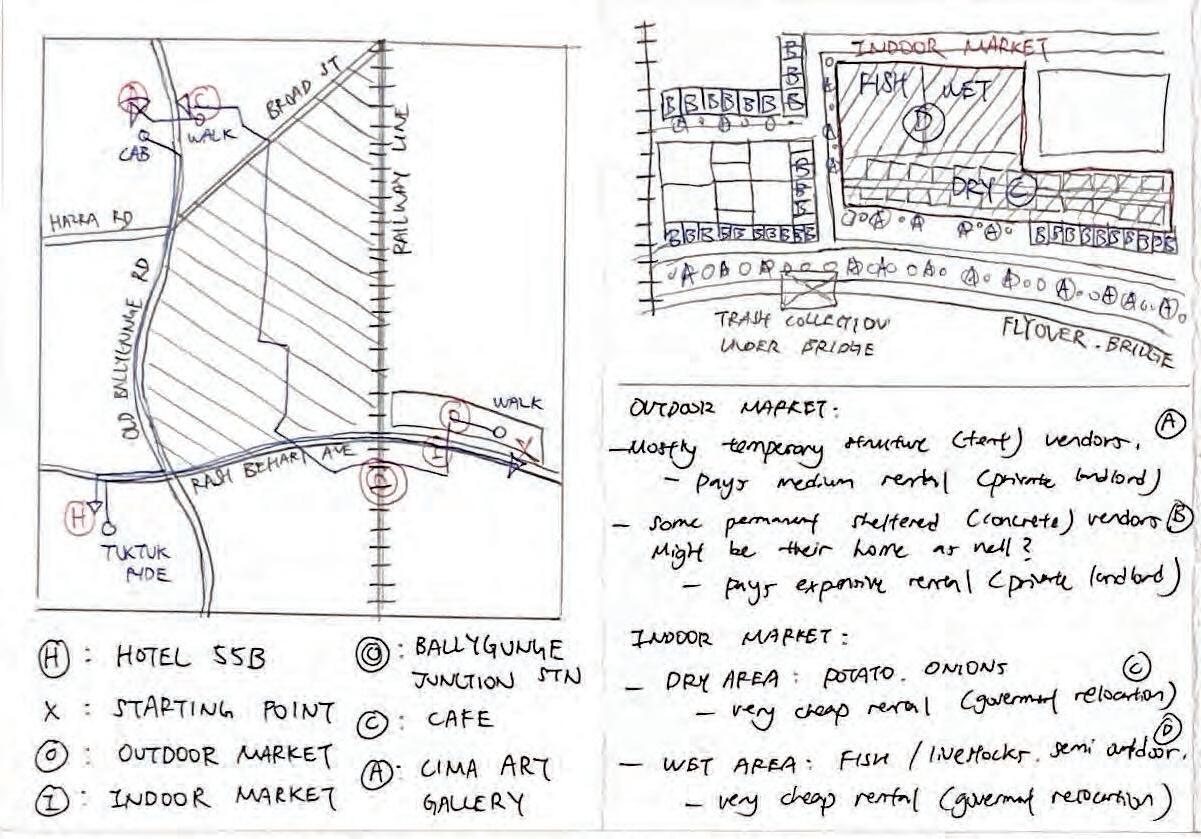 BROAD ST
A
C
WALK
CAB
RAILWAY LINE
HAZRA RD
OLD BALLYGUNGE RD
RASH BEHARI AVE
O
I
WALK
X
H
TUKTUK
RIDE
H : HOTEL 55B
X : STARTING POINT
O : OUTDOOR MARKET
I : INDOOR MARKET
O : BALLYGUNGE
JUNCTION STN
C : CAFE
A : CIMA ART
GALLERY
INDOOR MARKET
B
B
B
B
FISH WET
B B B B B B
D
B
B
B
B
DRY C
A A A A
B B B B B B B B
B B B B B B B B B B
A A A A A A A A A A A
TRASH COLLECTION
UNDER BRIDGE
FLYOVER BRIDGE
OUTDOOR MARKET:
- Mostly temporary structure (tent) vendors. A
- pays medium rental (private landlord)
- some permanent sheltered (concrete) vendors B
Might be their home as well?
- pays expensive rental (private landlord)
INDOOR MARKET:
- DRY AREA : POTATO. ONIONS C
- very cheap rental (government relocation)
- WET AREA : FISH / livestocks. semi outdoor. D
- very cheap rental (government relocation)